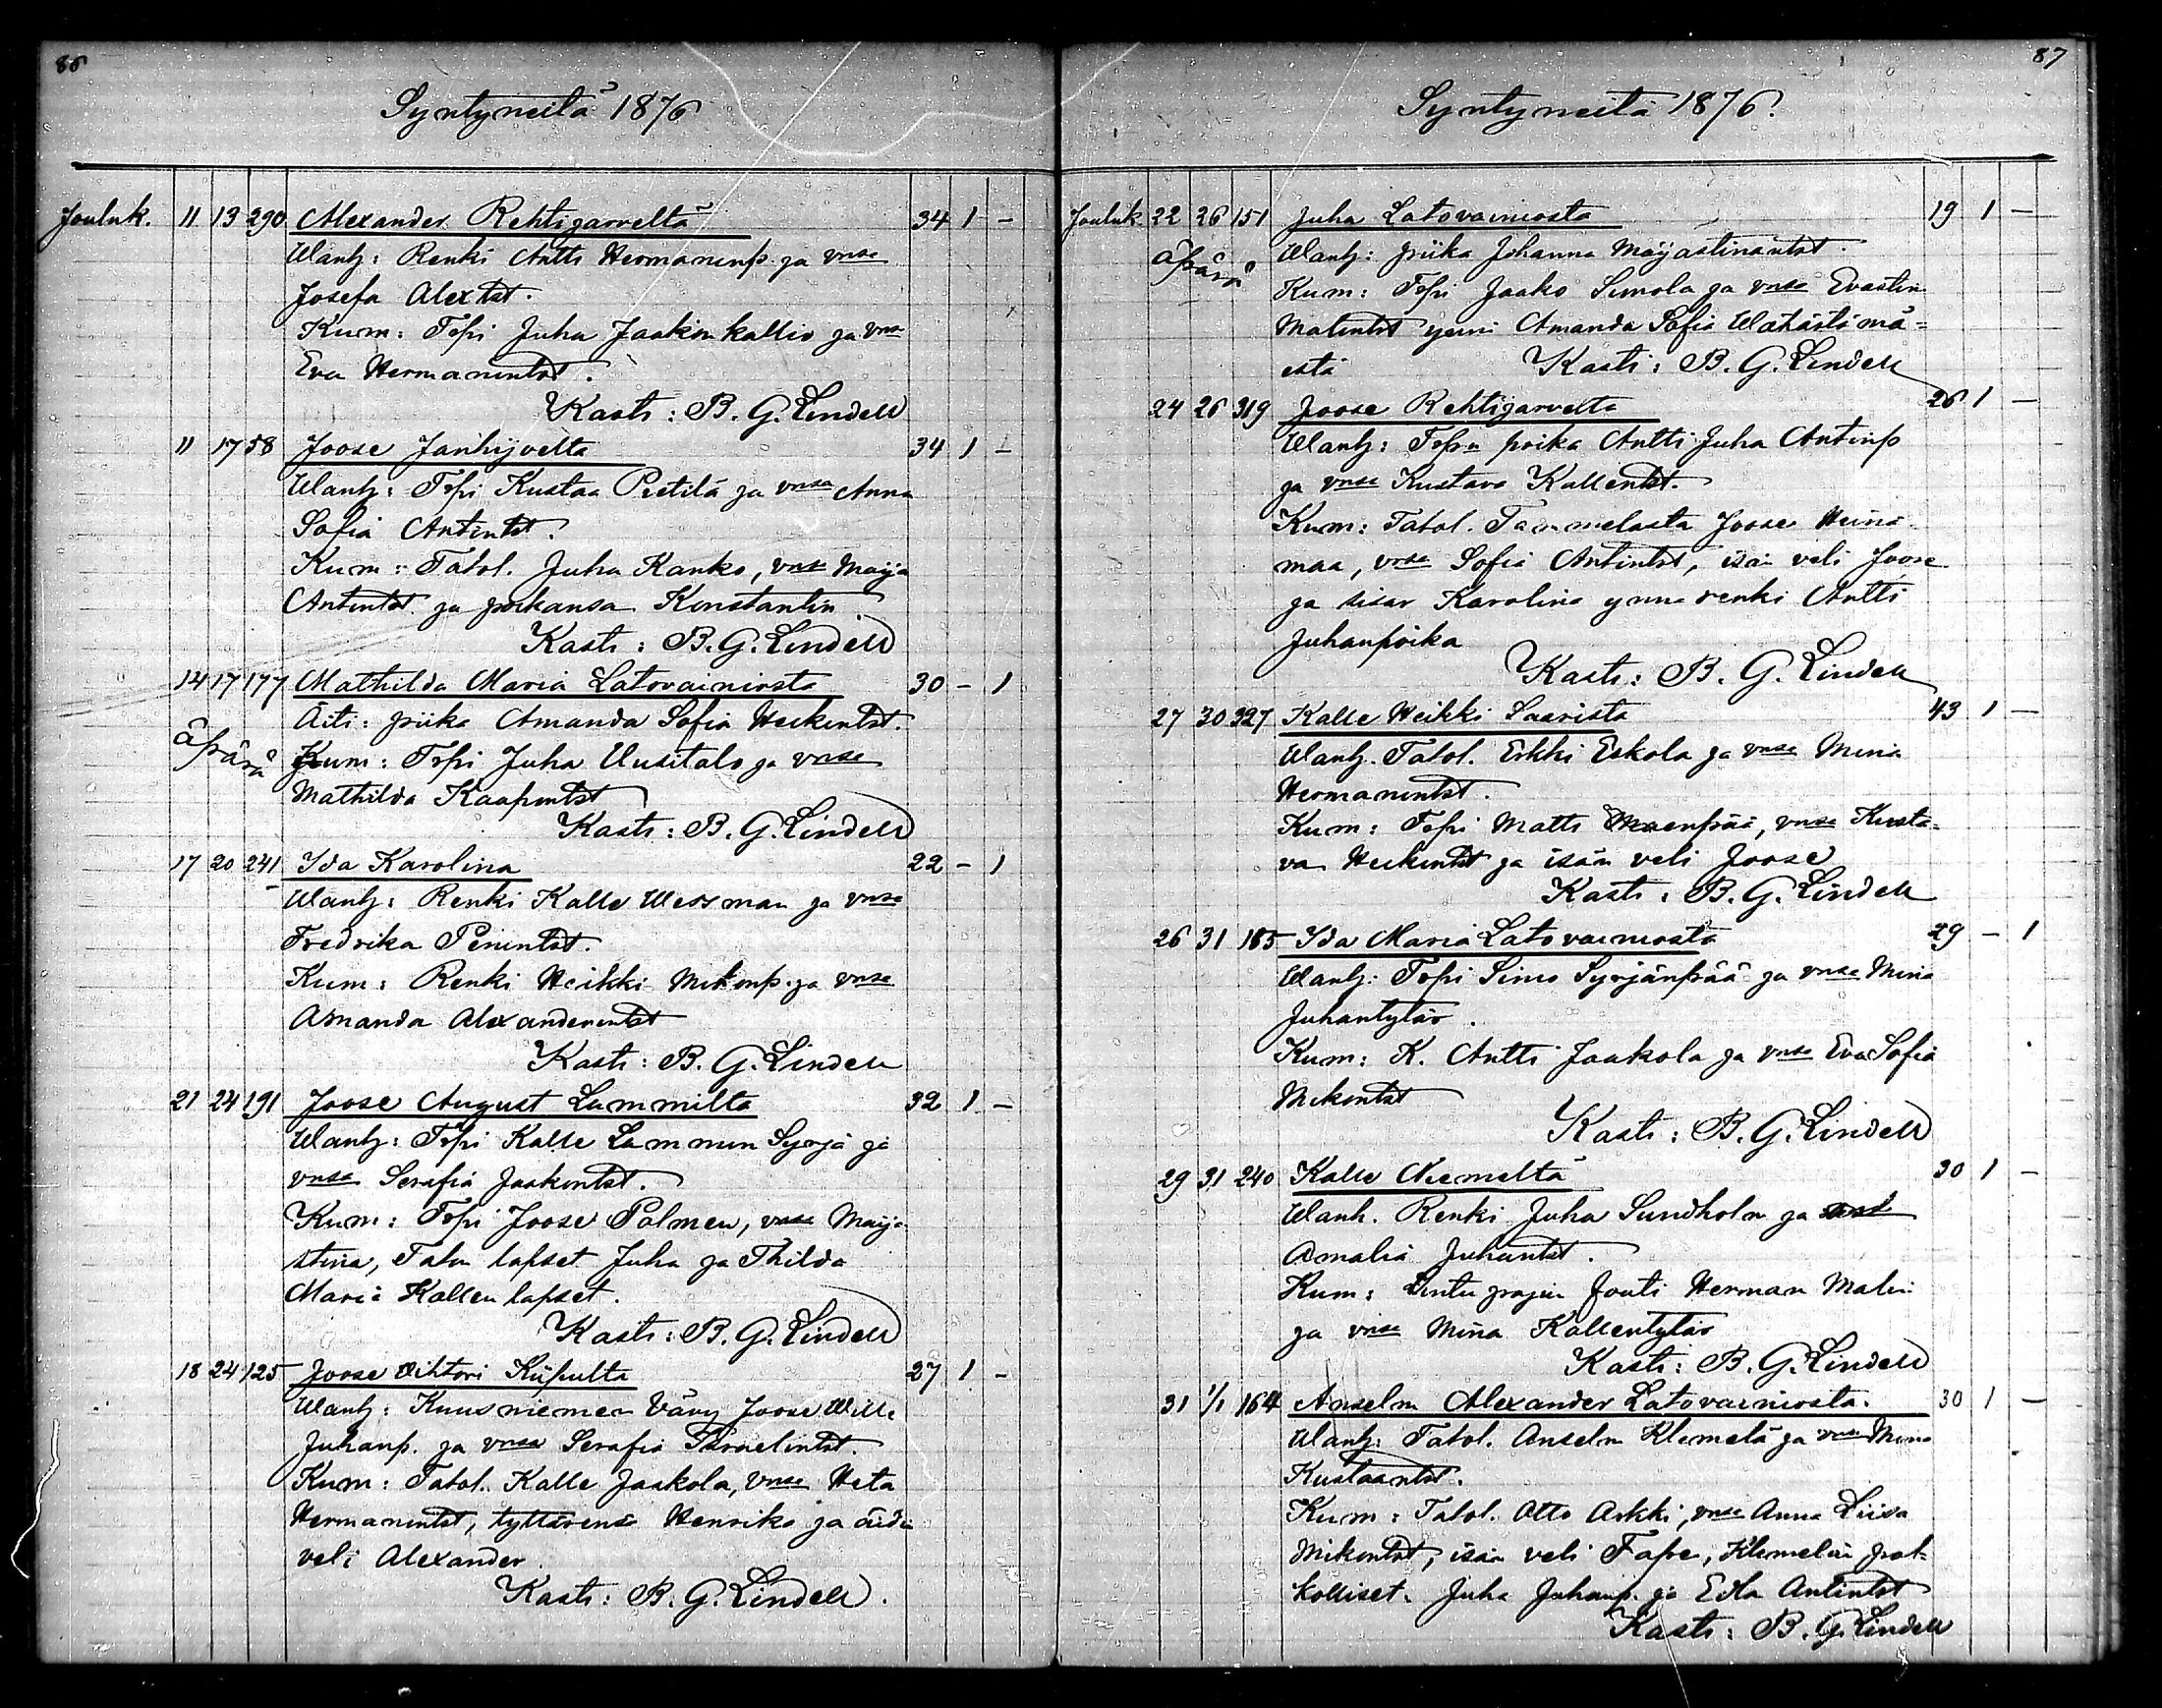 86
Syntyneitä 1876
Jouluk. 11 13 290 Alexander Rehtijärveltä 34 1 –
Wanh: Renki Antti Hermaninp. ja vmsa
Josefa Alextst.
Kum: Trpi Juha Jaakonkallio ja vmsa
Eva Hermanintst.
Kasti: B. G. Lindell
11 17 58 Joose Janhijoelta 34 1 –
Wanh: Trpi Kustaa Pietilä ja vmsa Anna
Sofia Antintst.
Kum: Talol. Juha Kanko, vmsa Maija
Antintst ja poikansa Konstantin
Kasti: B. G. Lindell
14 17 177 Mathilda Maria Latovainiosta 30 – 1
Äiti: piika Amanda Sofia Heikintst.
äpärä Kum: Trpi Juha Uusitalo ja vmsa
Mathilda Kaapontst
Kasti: B. G. Lindell
17 20 241 Ida Karolina 22 – 1
Wanh: Renki Kalle Wessman ja vmsa
Fredrika
Kum: Renki Heikki Mikonp. ja vmsa
Amanda Alexanderintst
Kasti: B. G. Lindell
21 24 191 Joose August Lammilta 32 1 –
Wanh: Trpi Kalle Lammin Syrjä ja
vmsa Serafia Jaakontst.
Kum: Trpi Joose Palmen, vmsa Maija
stina, Talon lapset Juha ja Thilda
Maria Kallen lapset.
Kasti: B. G. Lindell
18 24 125 Joose Vihtori Kiipulta 27 1 –
Wanh: Kuusniemen Vävy Joose Wille
Juhanp. ja vmsa Serafia Israelintst.
Kum: Talol. Kalle Jaakola, vmsa Heta
Hermanintst, tyttärensä Henrika ja äidin
veli Alexander.
Kasti: B. G. Lindell.
87
Syntyneitä 1876.
Jouluk 22 26 151 Juha Latovainiosta 19 1 –
äpärä Wanh: piika Johanna Maijastinantst.
Kum: Trpi Jaako Simola ja vmsa Evastina
Matintst ynni Amanda Sofia Wähästämä-
estä Kasti: B. G. Lindell
24 26 319 Joose Rehtijärveltä 26 1 –
Wanh: Trpn poika Antti Juha Antinp
ja vmsa Kustava Kallentst.
Kum: Talol. Tammelasta Joose Heinä
maa, vmsa Sofia Antintst, isän veli Joose
ja sisar Karolina ynnä renki Antti
Juhanpoika
Kasti: B. G. Lindell
27 30 327 Kalle Heikki Saarista 43 1 –
Wanh. Talol. Erkki Eskola ja vmsa Mina
Hermanintst.
Kum: Trpi Matti Maenpää, vmsa Kusta-
va Heikintst ja isän veli Joose
Kasti: B. G. Lindell
26 31 185 Ida Maria Latovainiosta 29 – 1
Wanh: Trpi Simo Syrjänpää ja vmsa Mina
Juhantytär.
Kum: K. Antti Jaakola ja vmsa Eva Sofia
Mikontst
Kasti: B. G. Lindell
29 31 240 Kalle Niemeltä 30 1 –
Wanh. Renki Juha Sundholm ja
Amalia Juhantst.
Kum: Fouti Herman Malin
ja vmsa Mina Kallentytär
Kasti: B. G. Lindell
31 1/1 164 Anselm Alexander Latovainiosta. 30 1 –
Wanh: Talol. Anselm Klemelä ja vmsa Mina
Kustaantst.
Kum: Talol. Otto Arkki, vmsa Anna Liisa
Mikontst, isän veli Fape, Klemelän puol-
kolliset. Juha Juhanp. ja Edla Antintst
Kasti: B. G. Lindell